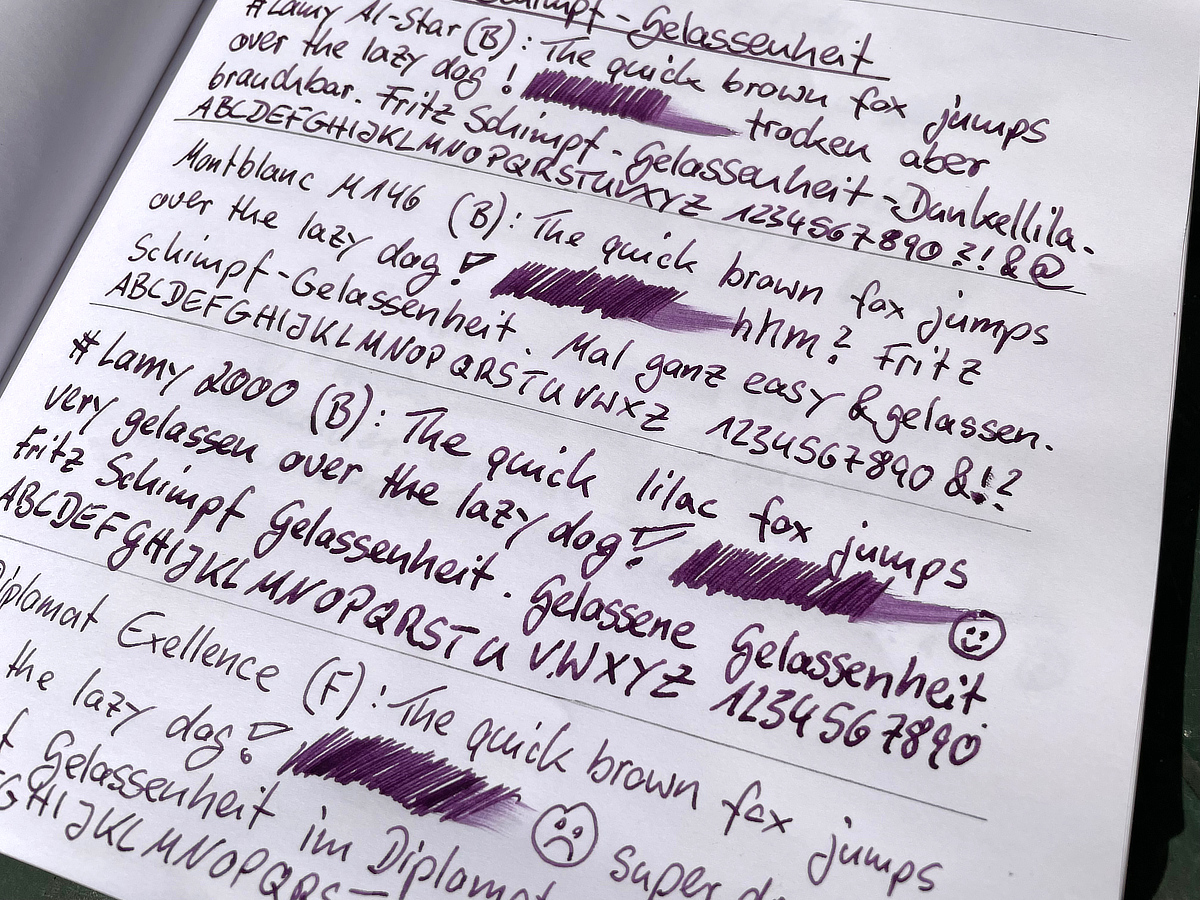 Schimpf - Gelassenheit
#Lamy Al-Star (B): The quick brown fox jumps
over the lazy dog! trocken aber
brauchbar. Fritz Schimpf - Gelassenheit - Dunkellila.
ABCDEFGHIJKLMNOPQRSTUVXYZ 1234567890?!&@
Montblanc M146 (B): The quick brown fox jumps
over the lazy dog! hHm? Fritz
Schimpf-Gelassenheit. Mal ganz easy & gelassen.
ABCDEFGHIJKLMNOPQRSTUVWXZ 1234567890 &!?
#Lamy 2000 (B): The quick lilac fox jumps
very gelassen over the lazy dog!
Fritz Schimpf Gelassenheit. Gelassene Gelassenheit.
ABCDEFGHIJKLMNOPQRSTUVWXYZ 1234567890
Diplomat Exellence (F): The quick brown fox jumps
the lazy dog! super
Gelassenheit im Diplomat
GHIJKLMNOPQRS